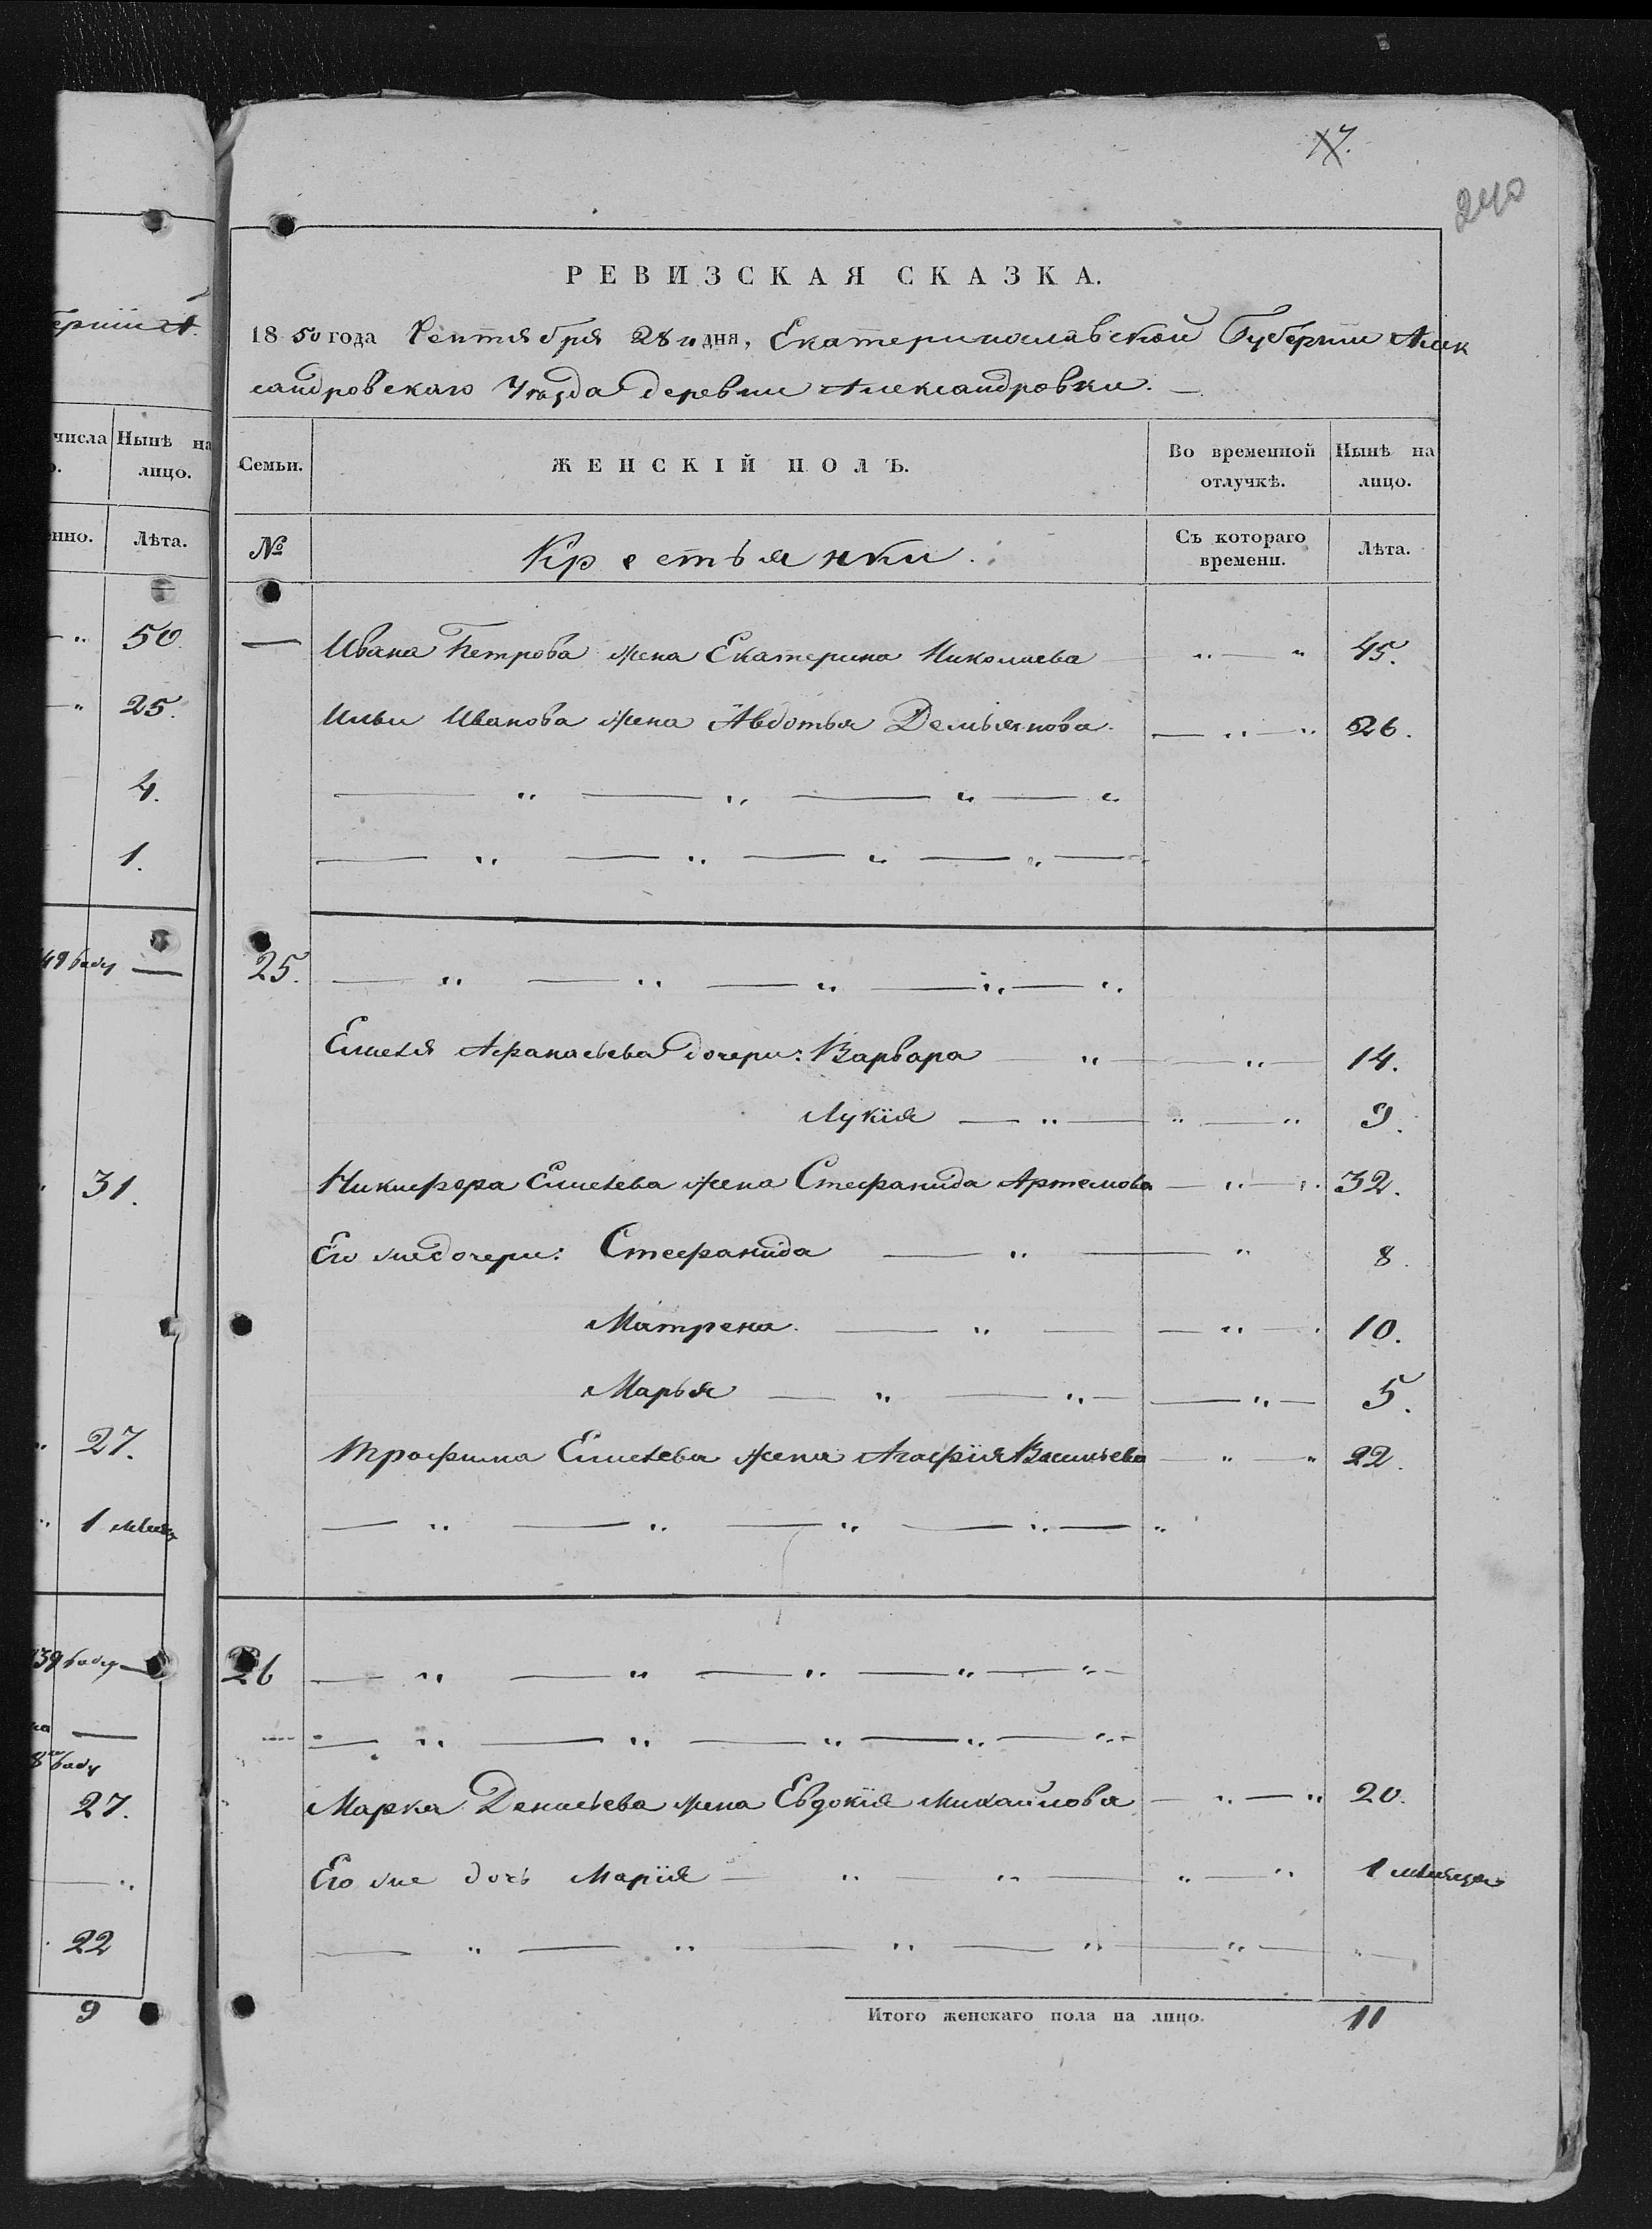 17.
240
РЕВИЗСКАЯ СКАЗКА.
1850 года Сентября 28 дня, Екатеринославской Губерніи Алек
сандровскаго Уѣзда деревни Александровки.
Семьи. ЖЕНСКІЙ ПОЛЪ. Во временной отлучкѣ. Нынѣ на лицо.
№ Крестьянки. Съ котораго времени. Лѣта.
— Ивана Петрова жена Екатерина Николаева — „ — „ 45.
Ильи Иванова жена Авдотья Демьянова — „ — „ 26.
— „ — „ — „ — „
— „ — „ — „ — „ —
25. — „ — „ — „ — „ — „
Елисея Афанасьева дочери: Варвара — „ — „ 14.
Лукія — „ — „ — „ 9.
Никифора Елисеева жена Стефанида Артемова — „ — „ 32.
Его же дочери: Стефанида — „ — „ 8.
Матрена — „ — „ — 10.
Марья — „ — „ — „ — 5.
Трофима Елисеева жена Агафія Васильева — „ — „ 22.
— „ — „ — „ — „ — „
26 — „ — „ — „ — „ — „ —
— „ — „ — „ — „ — „ —
Марка Денисьева жена Евдокія Михайлова — „ — „ 20.
Его же дочь Марія — „ — „ — „ — „ 1 мѣсяца
— „ — „ — „ — „ — „ — „ —
Итого женскаго пола на лицо. 11
ерніи А
числа Нынѣ на
лицо.
нно. Лѣта.
„ 50
„ 25.
4.
1.
49 году —
31.
„ 27.
„ 1 мѣсяц
39 году —
—
8 году
27.
— „
22
9